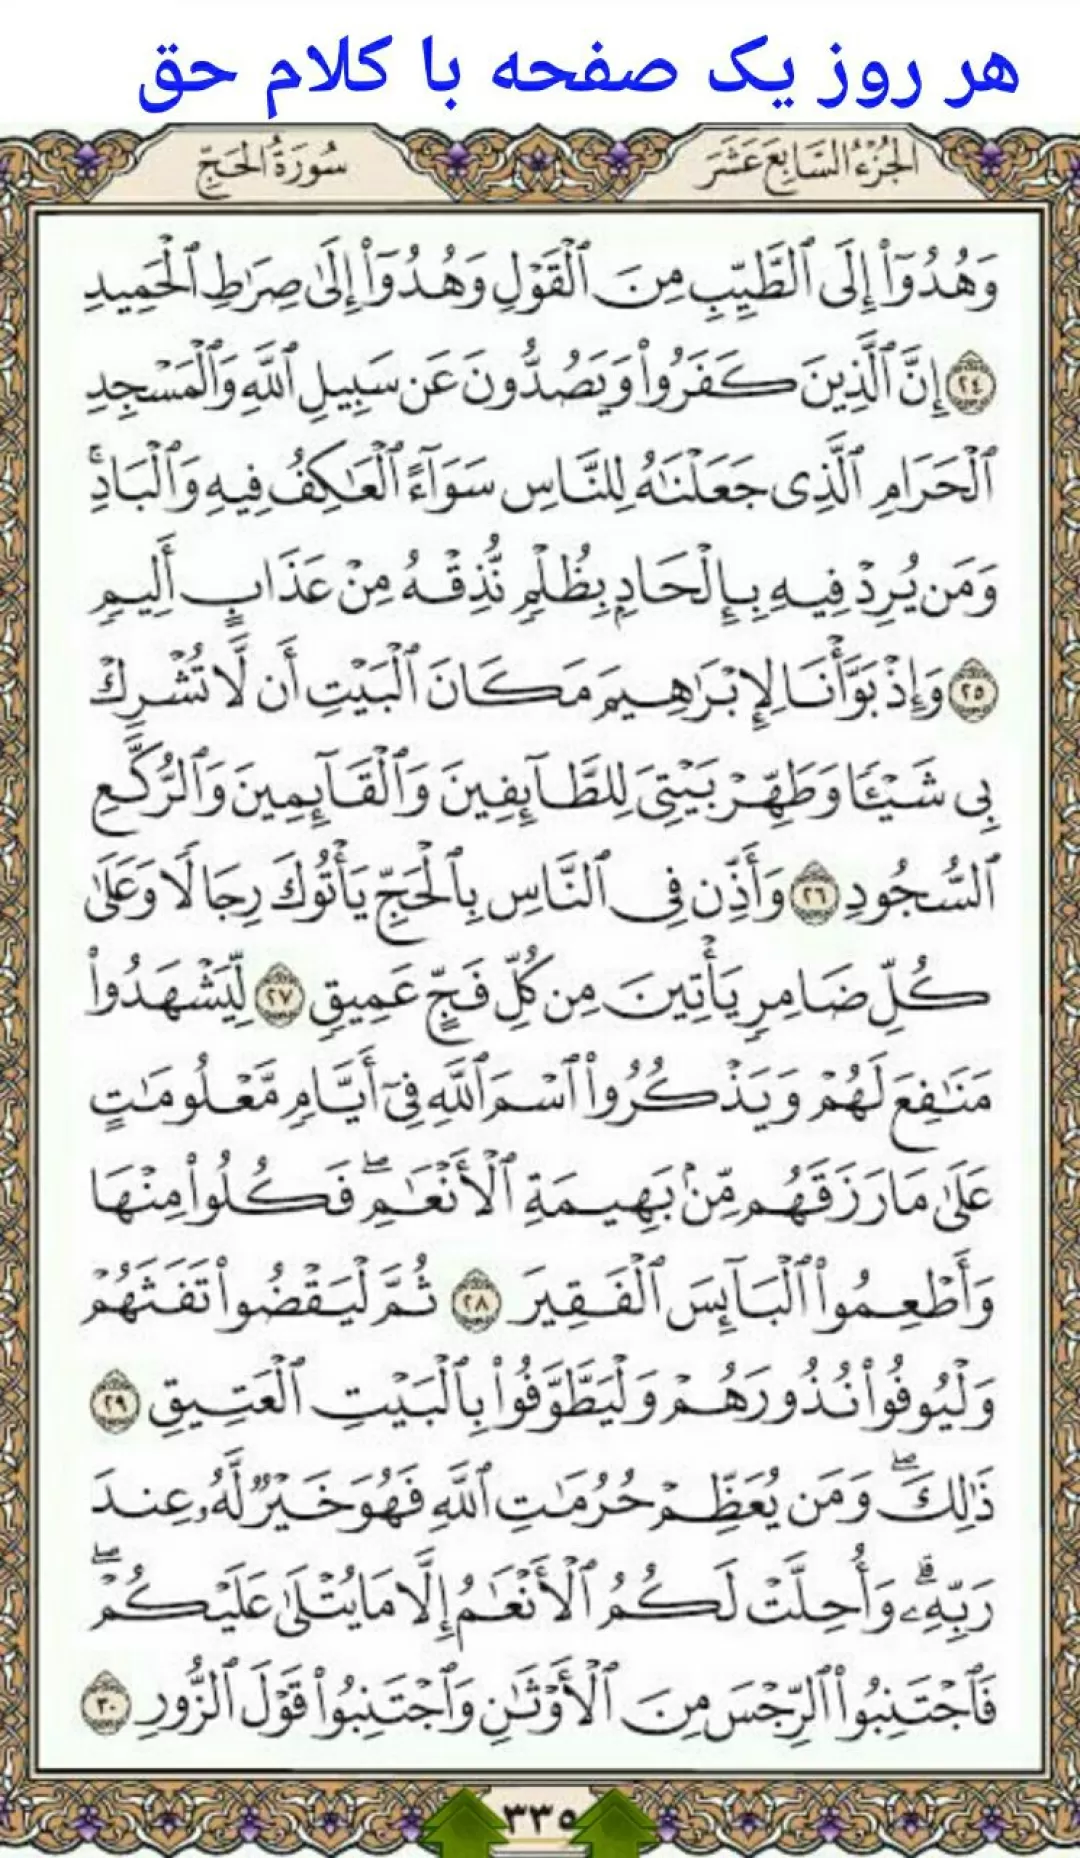 هر روز یک صفحه با کلام حق
الجُزْءُ السَّابِعَ عَشَرَ
سُورَةُ الحَجِّ
وَهُدُوٓا۟ إِلَى ٱلطَّيِّبِ مِنَ ٱلْقَوْلِ وَهُدُوٓا۟ إِلَىٰ صِرَٰطِ ٱلْحَمِيدِ
٢٤ إِنَّ ٱلَّذِينَ كَفَرُوا۟ وَيَصُدُّونَ عَن سَبِيلِ ٱللَّهِ وَٱلْمَسْجِدِ
ٱلْحَرَامِ ٱلَّذِى جَعَلْنَٰهُ لِلنَّاسِ سَوَآءً ٱلْعَٰكِفُ فِيهِ وَٱلْبَادِ ۚ
وَمَن يُرِدْ فِيهِ بِإِلْحَادٍۭ بِظُلْمٍ نُّذِقْهُ مِنْ عَذَابٍ أَلِيمٍ
٢٥ وَإِذْ بَوَّأْنَا لِإِبْرَٰهِيمَ مَكَانَ ٱلْبَيْتِ أَن لَّا تُشْرِكْ
بِى شَيْـًٔا وَطَهِّرْ بَيْتِىَ لِلطَّآئِفِينَ وَٱلْقَآئِمِينَ وَٱلرُّكَّعِ
ٱلسُّجُودِ ٢٦ وَأَذِّن فِى ٱلنَّاسِ بِٱلْحَجِّ يَأْتُوكَ رِجَالًا وَعَلَىٰ
كُلِّ ضَامِرٍ يَأْتِينَ مِن كُلِّ فَجٍّ عَمِيقٍ ٢٧ لِّيَشْهَدُوا۟
مَنَٰفِعَ لَهُمْ وَيَذْكُرُوا۟ ٱسْمَ ٱللَّهِ فِىٓ أَيَّامٍ مَّعْلُومَٰتٍ
عَلَىٰ مَا رَزَقَهُم مِّنۢ بَهِيمَةِ ٱلْأَنْعَٰمِ ۖ فَكُلُوا۟ مِنْهَا
وَأَطْعِمُوا۟ ٱلْبَآئِسَ ٱلْفَقِيرَ ٢٨ ثُمَّ لْيَقْضُوا۟ تَفَثَهُمْ
وَلْيُوفُوا۟ نُذُورَهُمْ وَلْيَطَّوَّفُوا۟ بِٱلْبَيْتِ ٱلْعَتِيقِ ٢٩
ذَٰلِكَ ۖ وَمَن يُعَظِّمْ حُرُمَٰتِ ٱللَّهِ فَهُوَ خَيْرٌ لَّهُۥ عِندَ
رَبِّهِۦ ۗ وَأُحِلَّتْ لَكُمُ ٱلْأَنْعَٰمُ إِلَّا مَا يُتْلَىٰ عَلَيْكُمْ ۖ
فَٱجْتَنِبُوا۟ ٱلرِّجْسَ مِنَ ٱلْأَوْثَٰنِ وَٱجْتَنِبُوا۟ قَوْلَ ٱلزُّورِ ٣٠
٣٣٥